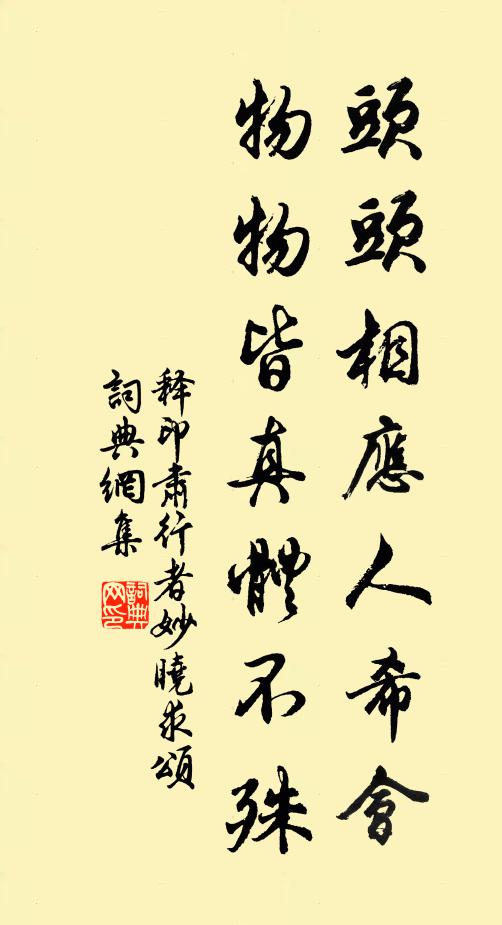 頭頭相應人希會
物物皆真體不殊
释印肅行者妙曉求頌
詞典網集
詞典网印